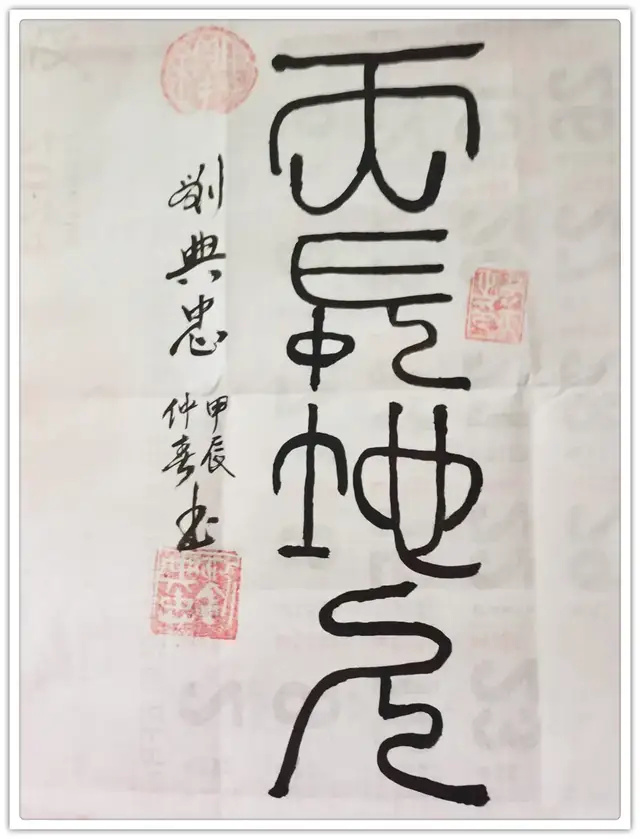 天長地久
劉典忠
甲辰
仲春書